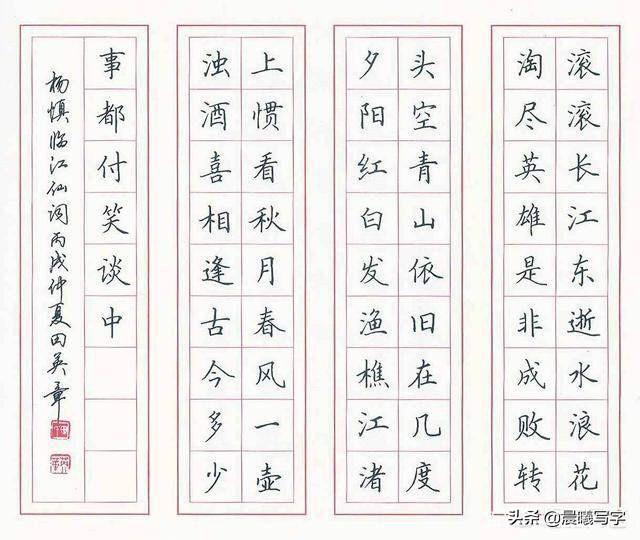 滚滚长江东逝水浪花
淘尽英雄是非成败转
头空青山依旧在几度
夕阳红白发渔樵江渚
上惯看秋月春风一壶
浊酒喜相逢古今多少
事都付笑谈中
杨慎临江仙词丙戌仲夏田英章
头条 @晨曦写字